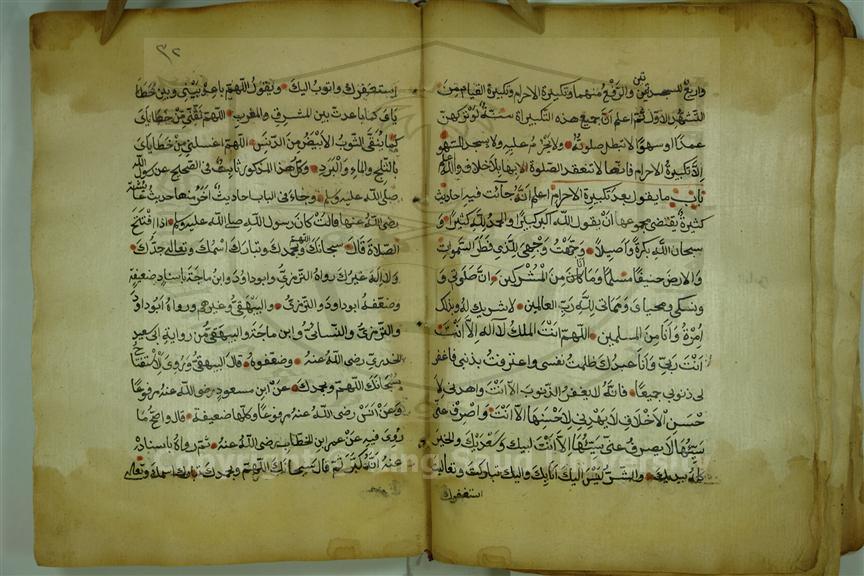 واربع للسجدتين والرفع منهما وتكبيرة الاحرام وتكبيرة القيام من
التشهد الاول ثم اعلم ان جميع هذه التكبيرات سنة لو تركهن
عمدا او سهوا لا تبطل صلوته ولا يحرم عليه ولا يسجد للسهو
الا تكبيرة الاحرام فانها لا تنعقد الصلوة الا بها بلا خلاف والله اعلم
باب ما يقول بعد تكبيرة الاحرام اعلم انه جائت فيه احاديث
كثيرة يقتضي مجموعها ان يقول الله اكبر كبيرا والحمد لله كثيرا و
سبحان الله بكرة واصيلا وجهت وجهي للذي فطر السموات
والارض حنيفا مسلما وما انا من المشركين ان صلوتي و
ونسكي ومحياي ومماتي لله رب العالمين لا شريك له وبذلك
امرت وانا من المسلمين اللهم انت الملك لا اله الا انت
انت ربي وانا عبدك ظلمت نفسي واعترفت بذنبي فاغفر
لي ذنوبي جميعا فانه لا يغفر الذنوب الا انت واهدني لا
حسن الاخلاف لا يهدني لاحسنها الا انت واصرف عني
سيئها لا يصرف عني سيئها الا انت لبيك وسعديك والخير
كله بيديك والشر ليس اليك انا بك واليك تباركت وتعاليت
استغفرك
٣٢
استغفرك واتوب اليك ويقول اللهم باعد بيني وبين خطا
ياي كما باعدت بين المشرق والمغرب اللهم نقني من خطاياي
كما ينقى الثوب الابيض من الدنس اللهم اغسلني من خطاياي
بالثلج والماء والبرد وكل هذا المذكور ثابت في الصحيح عن رسول الله
صلى الله عليه وسلم وجاء في الباب احاديث اخر منها حديث عائشة
رضى الله عنها قالت كان رسول الله صلى الله عليه وسلم اذا افتتح
الصلاة قال سبحانك اللهم وبحمدك وتبارك اسمك وتعالى جدك
ولا اله غيرك رواه الترمذي وابو داود وابن ماجة باسانيد ضعيفة
وضعفه ابو داود والترمذي والبيهقي وغيرهم ورواه ابو داود
والترمذي والنسائي وابن ماجة والبيهقي من رواية ابي سعيد
الخدري رضى الله عنه وضعفوه قال البيهقي وروى الاستفتاح
بسبحانك اللهم وبحمدك عن ابن مسعود رضى الله عنه مرفوعا
وعن انس رضى الله عنه مرفوعا وكلها ضعيفة قال واصح ما
روى فيه عن عمر ابن الخطاب رضى الله عنه ثم رواه باسناده
عنه انه كبر ثم قال سبحانك اللهم وبحمدك تبارك اسمك وتعالى